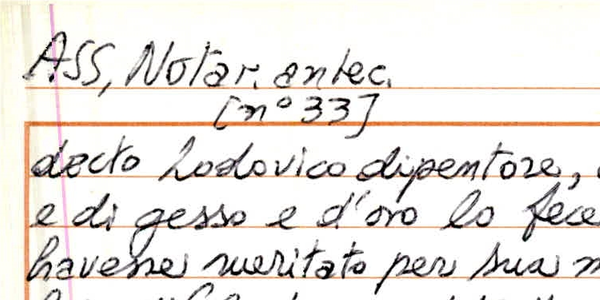 ASS, Notar. antec.
[n° 33]
decto Lodovico dipentore,
e di gesso e d'oro lo fece
havesse meritato per sua m